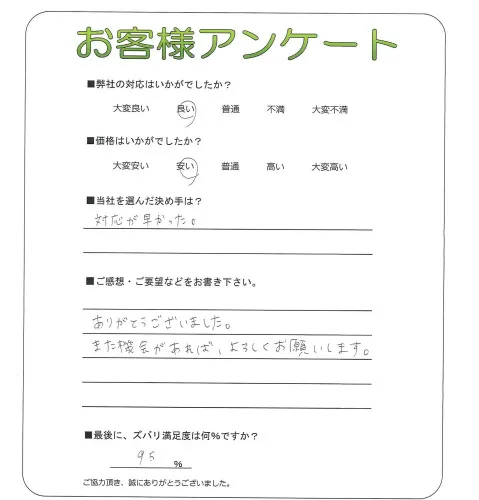 お客様アンケート
■弊社の対応はいかがでしたか？
大変良い 良い 普通 不満 大変不満
■価格はいかがでしたか？
大変安い 安い 普通 高い 大変高い
■当社を選んだ決め手は？
対応が早かった。
■ご感想・ご要望などをお書き下さい。
ありがとうございました。
また機会があれば、よろしくお願いします。
■最後に、ズバリ満足度は何%ですか？
95 %
ご協力頂き、誠にありがとうございました。